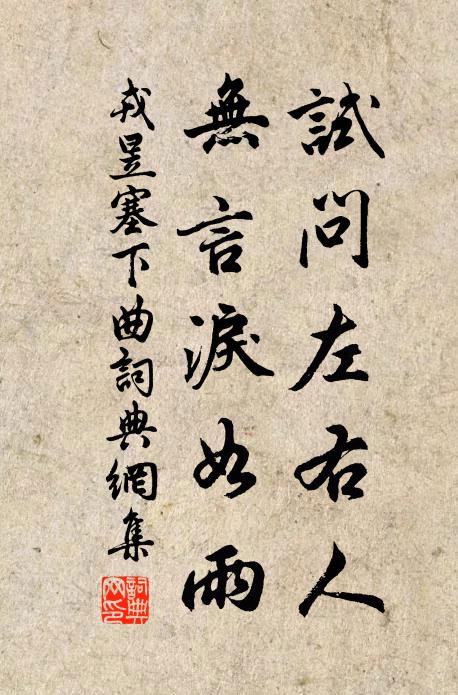 試問左右人
無言淚如雨
戎昱塞下曲詞典網集
詞典